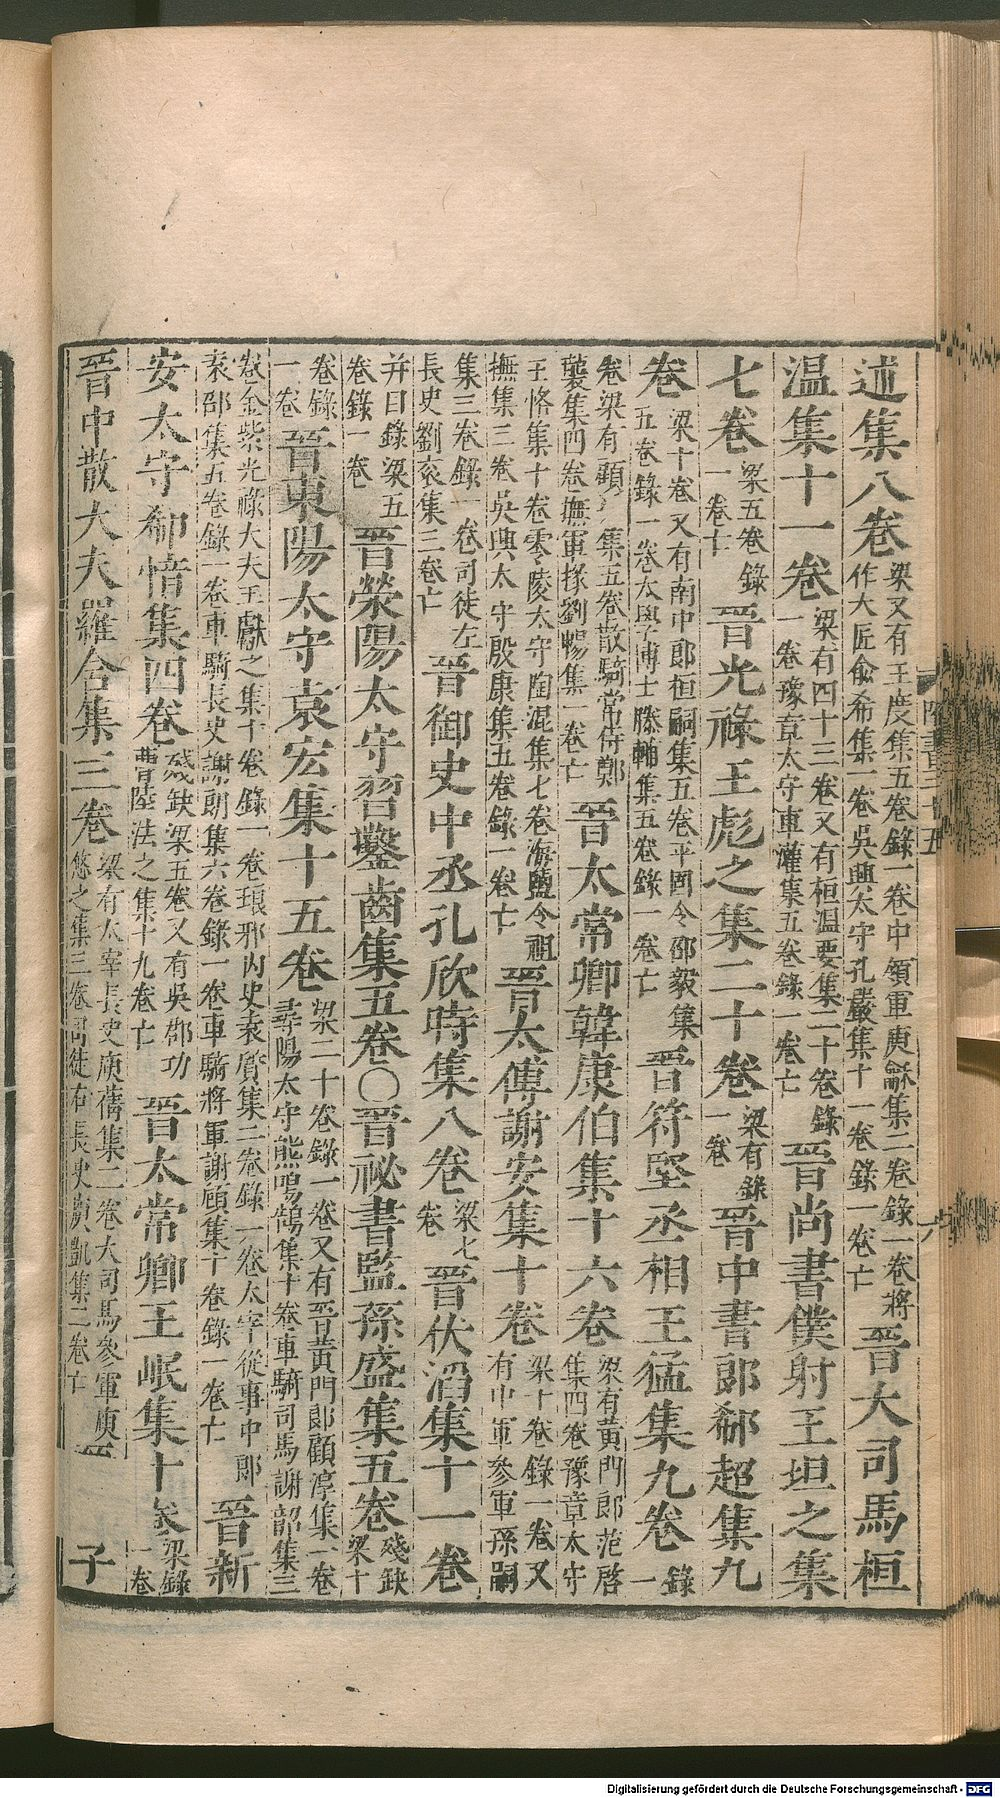 述集八卷梁又有王度集五卷錄一卷中領軍庾龢集二卷錄一卷將作大匠俞希集一卷吳興太守孔嚴集十一卷錄一卷亡晉大司馬桓
溫集十一卷梁有四十三卷又有桓溫要集二十卷錄一卷豫章太守車灌集五卷錄一卷亡晉尚書僕射王坦之集
七卷梁五卷錄一卷亡晉光祿王彪之集二十卷梁有錄一卷晉中書郎郗超集九
卷梁十卷又有南中郎桓嗣集五卷平固令邵毅集五卷錄一卷太學博士滕輔集五卷錄一卷亡晉符堅丞相王猛集九卷錄一
卷梁有顧集五卷散騎常侍鄭襲集四卷撫軍掾劉暢集一卷亡晉太常卿韓康伯集十六卷梁有黃門郎范啓集四卷豫章太守
王恪集十卷零陵太守陶混集七卷海鹽令祖撫集三卷吳興太守殷康集五卷錄一卷亡晉太傅謝安集十卷梁十卷錄一卷又有中軍參軍孫嗣
集三卷錄一卷司徒左長史劉袞集三卷亡晉御史中丞孔欣時集八卷梁七卷晉伏滔集十一卷
并目錄梁五卷錄一卷晉滎陽太守習鑿齒集五卷○晉祕書監孫盛集五卷殘缺梁十
卷錄一卷晉東陽太守袁宏集十五卷梁二十卷錄一卷又有晉黃門郎顧淳集一卷尋陽太守熊鳴鵠集十卷車騎司馬謝韶集三
卷金紫光祿大夫王獻之集十卷錄一卷琅邪內史袁質集二卷錄一卷太宰從事中郎袁邵集五卷錄一卷車騎長史謝朗集六卷錄一卷車騎將軍謝頠集十卷錄一卷亡晉新
安太守郗愔集四卷殘缺梁五卷又有吳郡功曹陸法之集十九卷亡晉太常卿王岷集十卷梁錄一卷
晉中散大夫羅含集三卷梁有太宰長史庾蒨集二卷大司馬參軍庾悠之集三卷司徒右長史庾凱集二卷亡晉子
隋書三十五
六
Digitalisierung gefördert durch die Deutsche Forschungsgemeinschaft - DFG